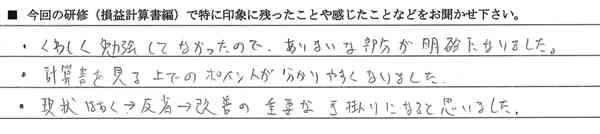 ■ 今回の研修（損益計算書編）で特に印象に残ったことや感じたことなどをお聞かせ下さい。
・くわしく勉強してなかったので、あいまいな部分が明確になりました。
・計算書を見る上でのポイントが分かりやすくなりました。
・現状はあく→反省→改善の重要な手掛りになると思いました。